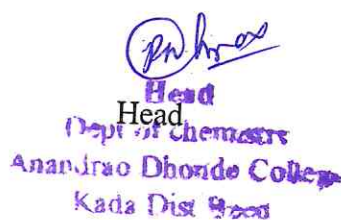 Head
Head
Dept of Chemistry
Anandrao Dhonde College
Kada Dist Beed